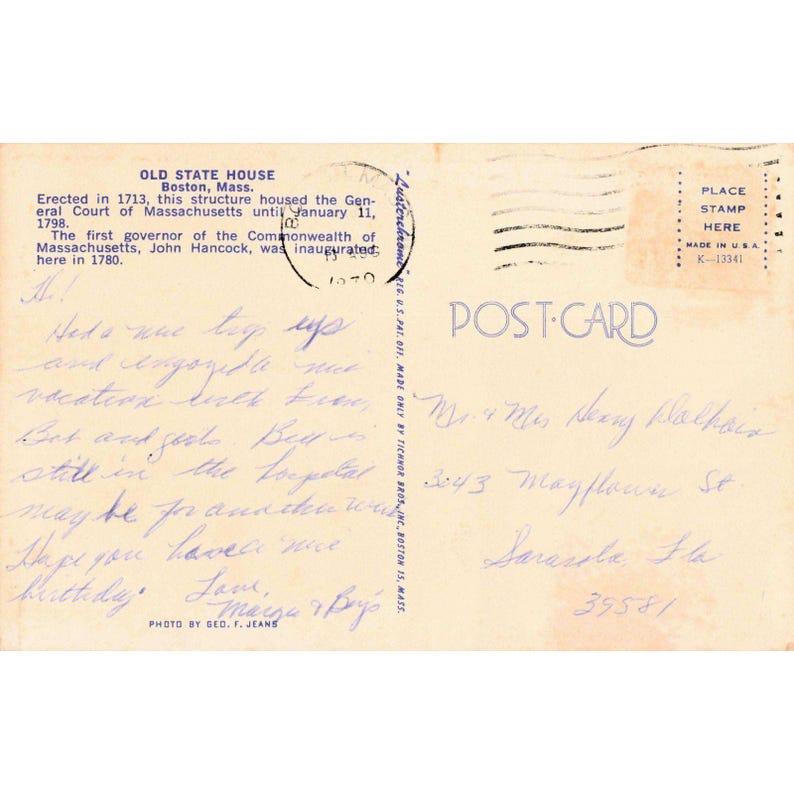 OLD STATE HOUSE
Boston, Mass.
Erected in 1713, this structure housed the Gen-
eral Court of Massachusetts until January 11,
1798.
The first governor of the Commonwealth of
Massachusetts, John Hancock, was inaugurated
here in 1780.
Hi!
Had a nice trip up
and enjoyed a nice
vacation with
Bob and girls. Bill is
still in the hospital
may be for another week
Hope you have a nice
birthday. Love,
Margie &
PHOTO BY GEO. F. JEANS
"Lusterchrome" REG. U.S. PAT. OFF. MADE ONLY BY TICHNOR BROS., INC., BOSTON 15, MASS.
AUG
1970
PLACE
STAMP
HERE
MADE IN U.S.A.
K—13341
POST·CARD
Mr. & Mrs Henry
3043
Mayflower St
Sarasota, Fla
39581